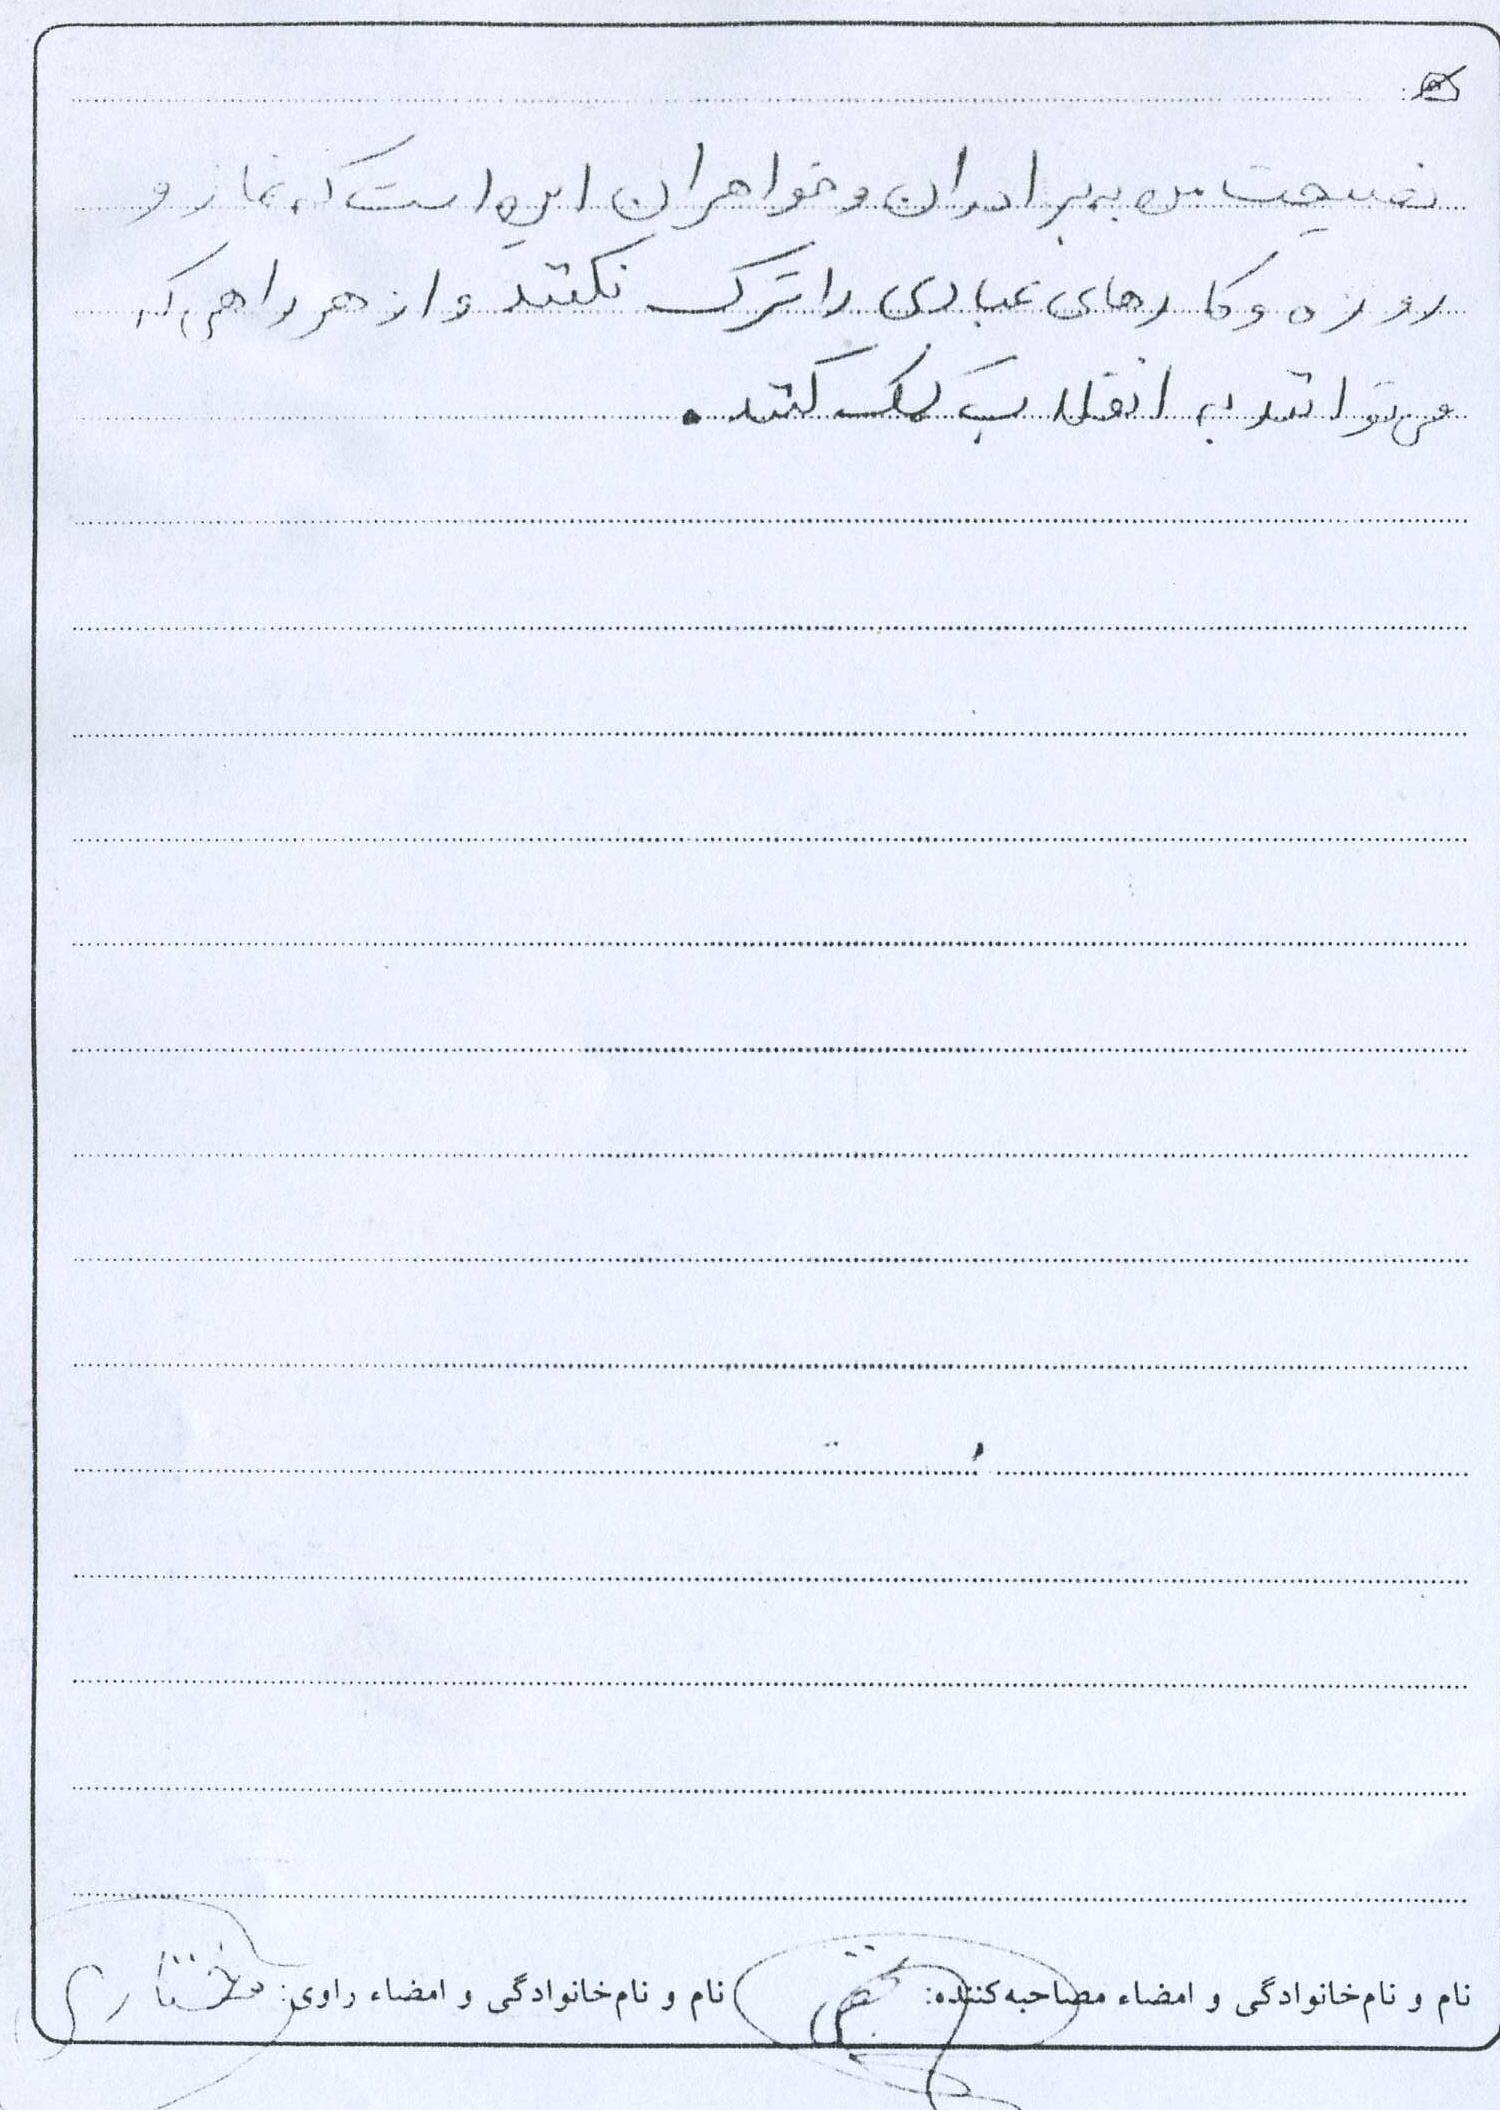 نصیحت من به برادران و خواهران این است که نماز و
روزه و کارهای عبادی را ترک نکنند و از هر راهی که
می توانند به انقلاب کمک کنند.
نام و نام‌خانوادگی و امضاء مصاحبه‌کننده: نام و نام‌خانوادگی و امضاء راوی: